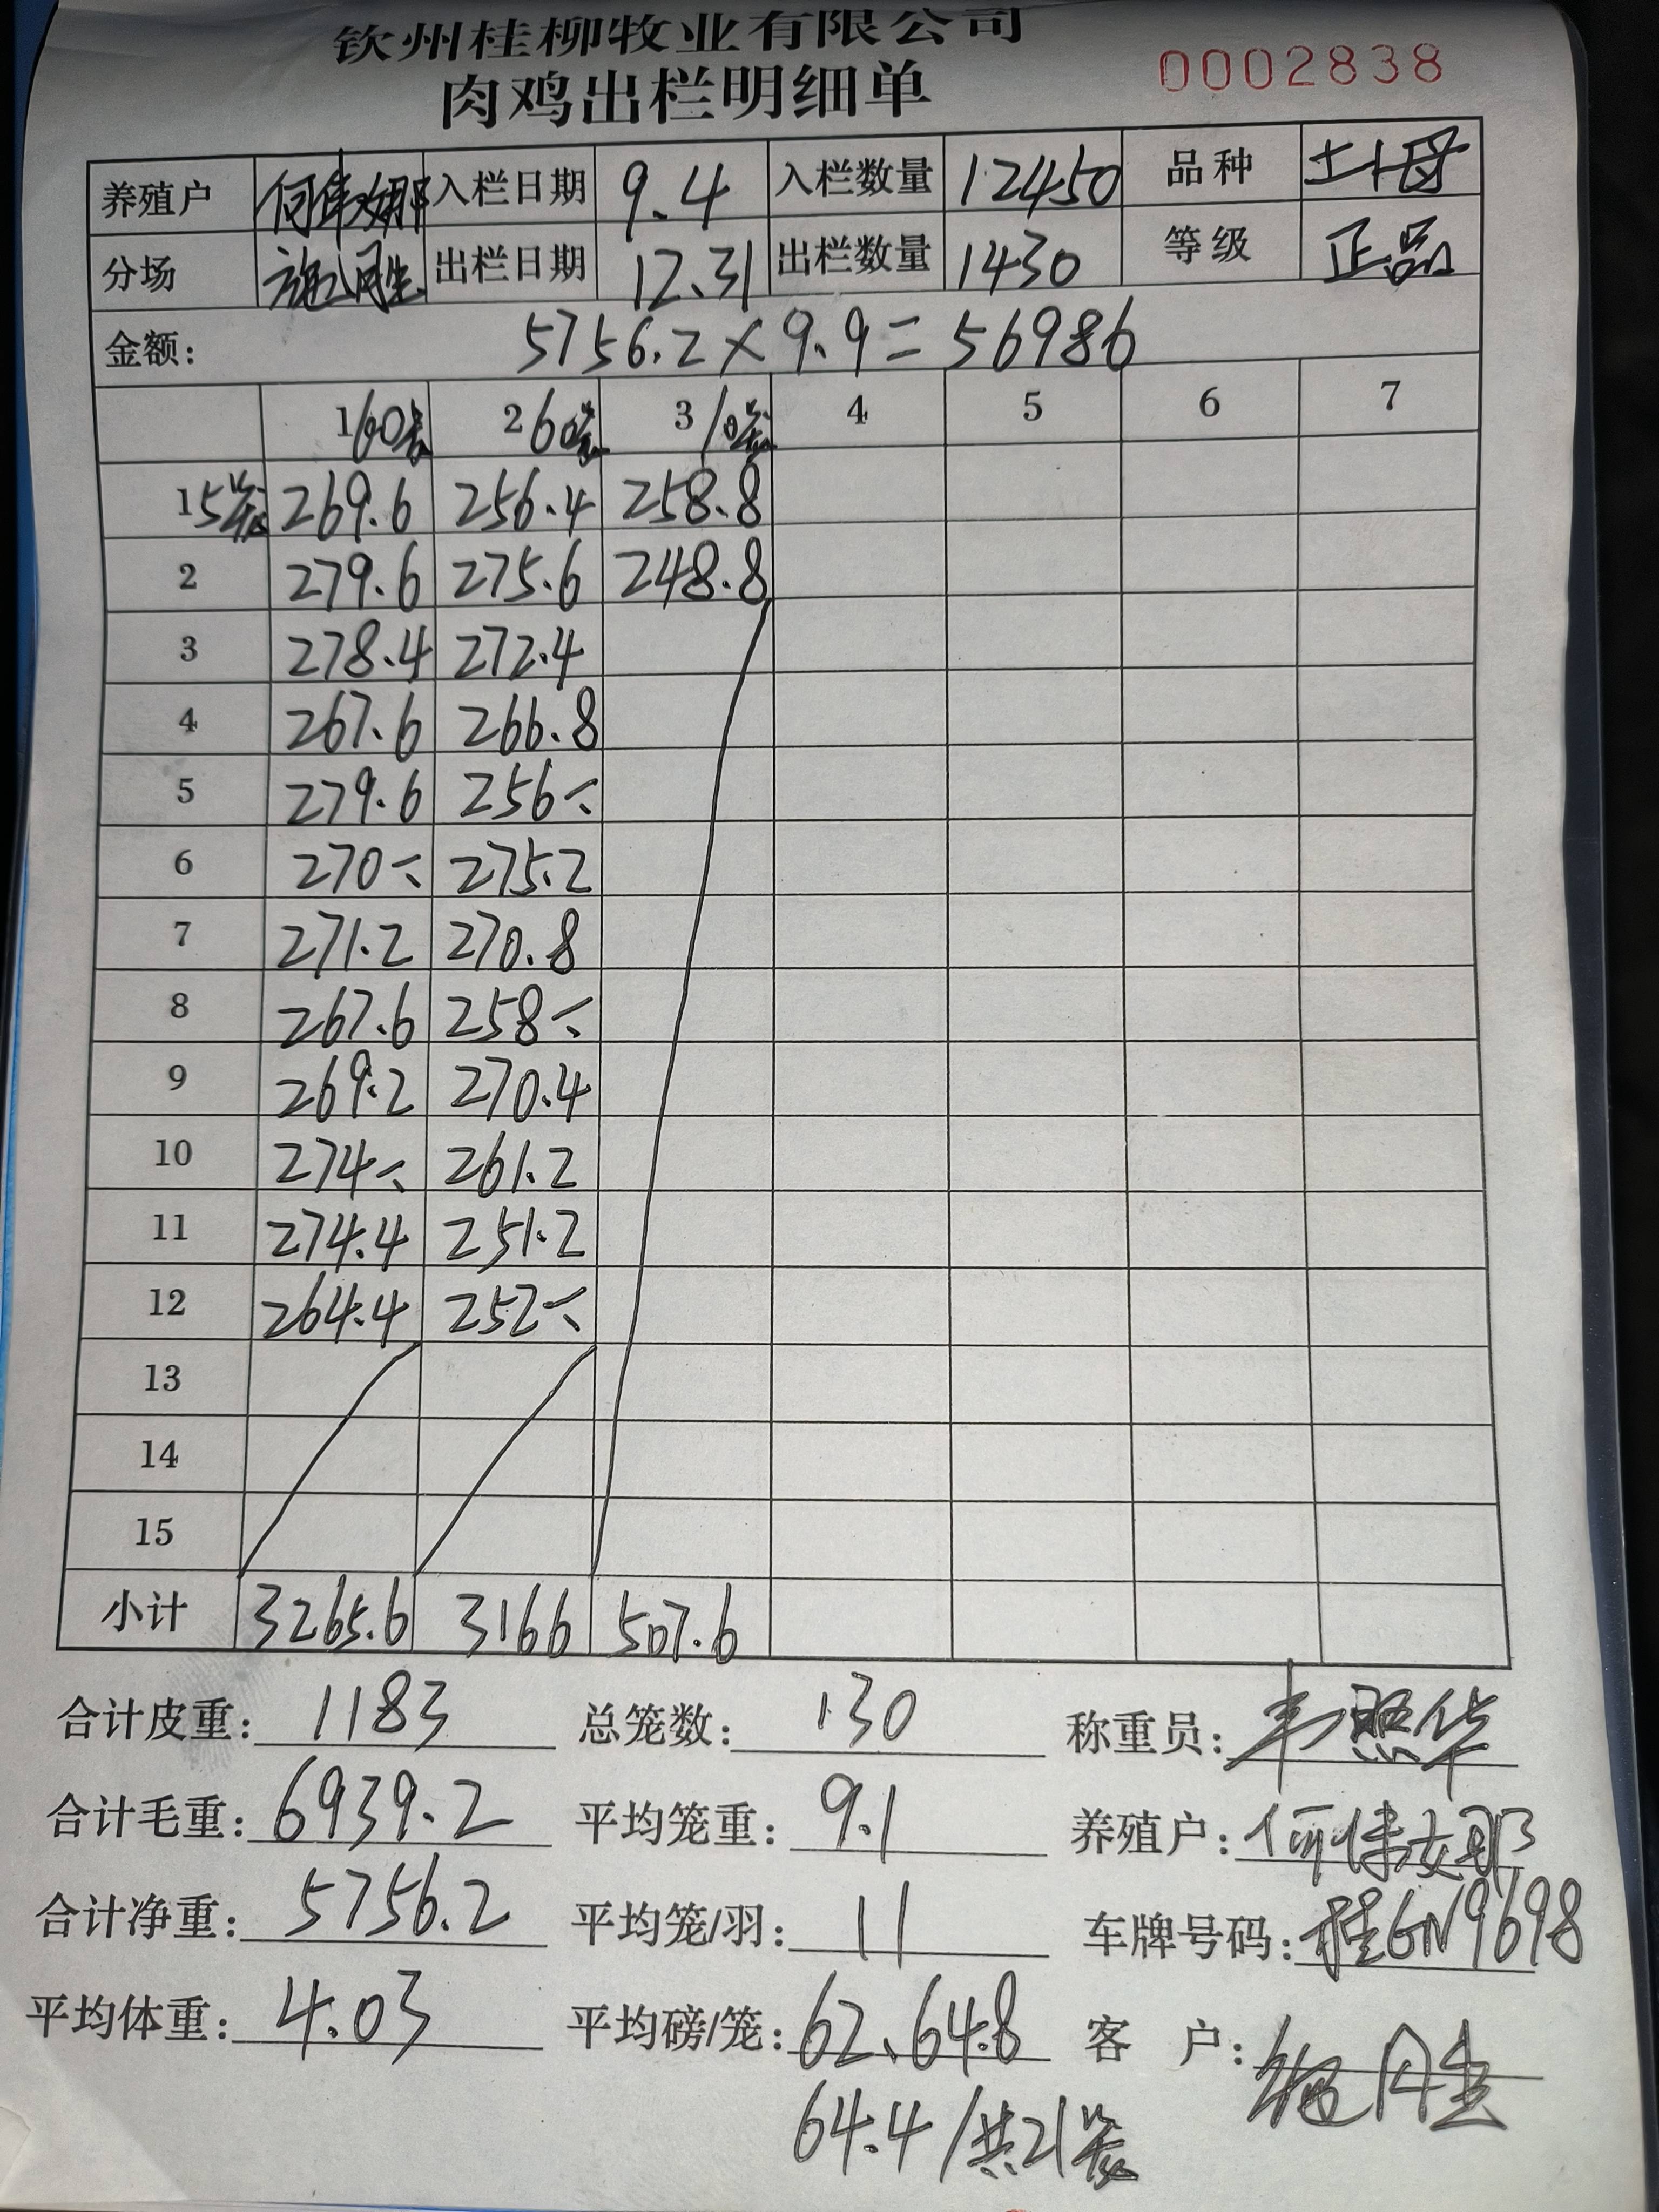 钦州桂柳牧业有限公司
肉鸡出栏明细单 0002838
养殖户 何伟娜 入栏日期 9.4 入栏数量 12450 品种 土母
分场 出栏日期 12.31 出栏数量 1430 等级 正品
金额: 5756.2×9.9=56986
1 60笼 2 60笼 3 10笼 4 5 6 7
1 5笼 269.6 256.4 258.8
2 279.6 275.6 248.8
3 278.4 272.4
4 267.6 266.8
5 279.6 256
6 270 275.2
7 271.2 270.8
8 267.6 258
9 269.2 270.4
10 274 261.2
11 274.4 251.2
12 264.4 252
13
14
15
小计 3265.6 3166 507.6
合计皮重: 1183 总笼数: 130 称重员:
合计毛重: 6939.2 平均笼重: 9.1 养殖户: 何伟娜
合计净重: 5756.2 平均笼/羽: 11 车牌号码: 桂GN9698
平均体重: 4.03 平均磅/笼: 62、64.8 客 户:
64.4/共21笼